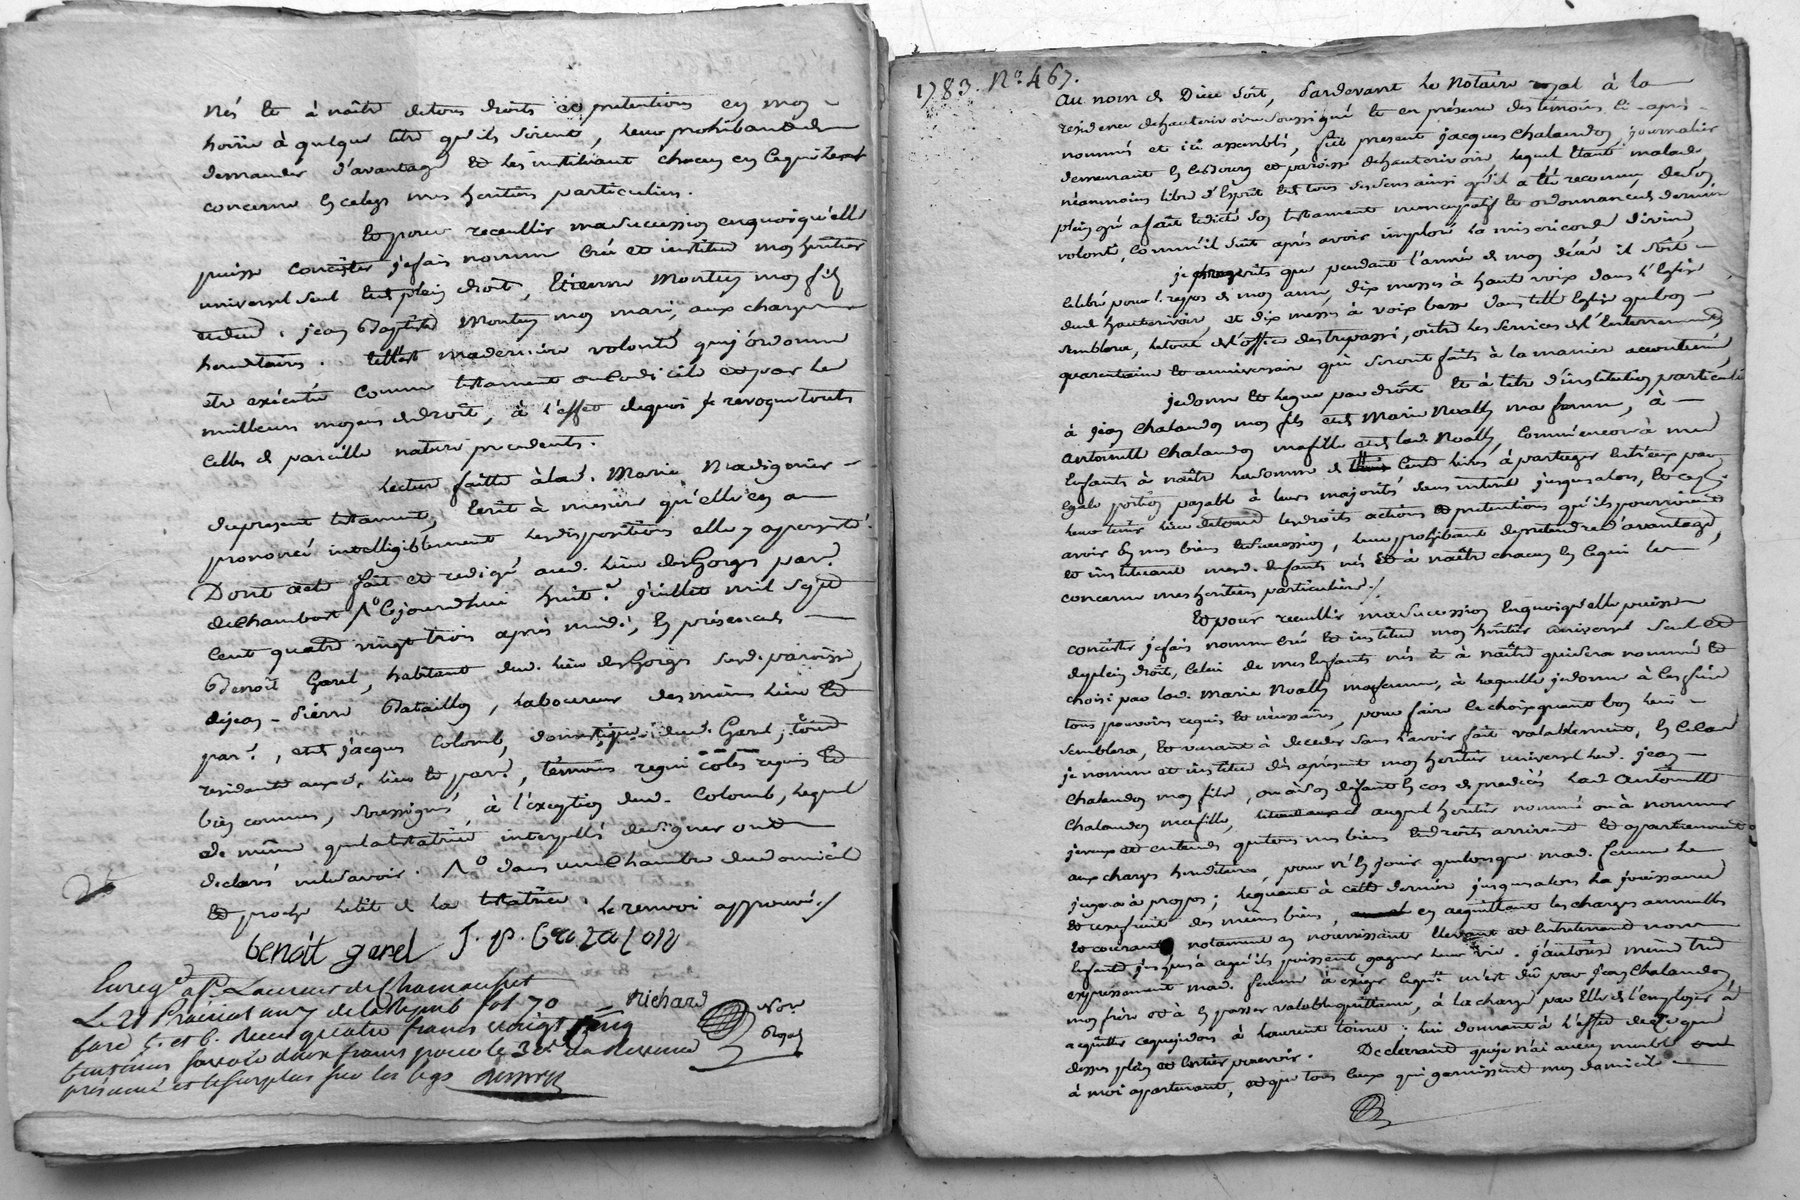 nés et à naître de tous droits et pretentions en mon
hoirie à quelque titre qu'ils soient, leur prohibant de
demander d'avantage et les instituant chacun en ce qui les
concerne en ce legs mes heritiers particuliers.
Et pour receuillir ma succession en quoi qu'elle
puisse concister je fais nomme crée et institue mon heritier
universel seul et de plein droit, Etienne Montuy mon fils
et dud. jean Baptiste Montuy mon mari, aux charges
hereditaires. telle est ma derniere volonté que j'ordonne
etre exécuté comme testament ou codicile et par les
meilleurs moyens de droit, à l'effet de quoi je revoque touts
celles de pareille nature precedents.
Lecture faitte à lad. Marie Madignier
du present testament, ecrit à mesure qu'elle en a
prononcé intelligiblement les dispositions elle y a persisté.
Dont acte fait et redigé aud. lieu des Gorges par.
de chambost Ao cejourdhui huit. juillet mil sept
cent quatre vingt trois après midi, en présences
Benoît Garel, habitant dud. lieu des Gorges susd. paroisse,
de jean-Pierre Bataillon, laboureur des mêmes lieu et
par., et de jacques Colomb, domestique dud. Garel, tous
residants auxd. lieu et par., témoins requis
bien connus, soussignés, à l'exception dud. Colomb, lequel
de même que la testatrice interpellés de signer ont
declaré ne le savoir. Ao dans une chambre du domicile
et proche le lit de la testatrice. le renvoi approuvé./
benoît garel J. p. Bataillon
Enreg. a St. Laurent de Chamousset
Le 21 Prairial an 7 de la Repub. fol. 70
richard
Nore
Royal
farc 5. et 6. Recu quatre francs vingt cinq
centimes savoir deux francs pour le
présumé et le surplus sur les legs
1783. No. 467.
Au nom de Dieu soit, Pardevant le Notaire royal à la
residence de hauterivoire soussigné et en présence des témoins ci-après
nommés et ici assemblés, fut present jacques Chalandon, journalier
demeurant en paroisse de hauterivoire, lequel étant malade
néanmoins libre d'Esprit et de tous ses sens ainsi qu'il a été reconnu, de son
plein gré a fait et dicté son testament nuncupatif et ordonnance de derniere
volonté, comme il suit après avoir imploré la misericorde divine,
je prescrits que pendant l'année de mon décès il soit
celebré pour le repos de mon ame, dix messes à haute voix dans l'Eglise
dud. hauterivoire, et dix messes à voix basse dans telle Eglise que bon
semblera, le tout de l'office des trepassés, outre les services de l'enterrement,
quarantaine et anniversaire qui seront faits à la maniere accoutumée,
je donne et legue par droit et à titre d'institution particuliere
à jean Chalandon mon fils et de Marie Noally ma femme, à
Antoinette Chalandon ma fille et de lad. Noally, comme encore à mes
enfants à naître la somme de cent livres à partager entr'eux par
egale portion payable à leurs majorités sans interet jusqu'alors, et ce
leur tenir lieu de tous les droits actions et pretentions qu'ils pourroient
avoir en mes biens et succession, leur prohibant de pretendre d'avantage,
et instituant mesd. enfants nés et à naître chacun en ce qui les
concerne mes heritiers particuliers./
Et pour receuillir ma succession en quoi qu'elle puisse
concister je fais nomme crée et institue mon heritier universel seul et
de plein droit, celui de mes enfants nés et à naître qui sera nommé et
choisi par lad. Marie Noally ma femme, à laquelle je donne à ces fins
tous pouvoirs requis et nécessaires, pour faire le choix quant bon lui
semblera, et venant à deceder sans l'avoir fait valablement, en ce cas
je nomme et institue dès apresent mon heritier universel led. jean
Chalandon mon fils, ou à son defaut en cas de predécès lad. Antoinette
Chalandon ma fille, auquel heritier nommé ou à nommer
je veux et entends que tous mes biens et droits arrivent et appartiennent
aux charges hereditaires, pour n'en jouir que lorsque mad. femme le
jugera à propos; leguant à cette derniere jusqu'alors la jouissance
et usufruit des mêmes biens, en acquittant les charges annuelles
et courantes, notament en nourrissant elevant et entretenant nos
enfants jusqu'à ce qu'ils puissent gagner leur vie. j'autorise même très
expressement mad. femme à exiger ce qui m'est dû par jean Chalandon
mon frère et à en passer valable quittance, à la charge par elle de l'employer à
acquitter ce que je dois à laurent toinet: lui donnant à l'effet de ce que
dessus plein et entier pouvoir. Declarant que je n'ai aucun meuble
à moi appartenant, et que tous ceux qui garnissent mon domicile